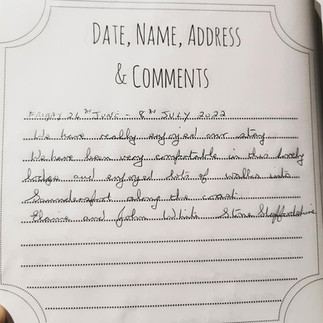 DATE, NAME, ADDRESS
& COMMENTS
FRIDAY 24TH JUNE - 8TH JULY 2022
We have really enjoyed our stay
We have been very comfortable in this lovely
lodge and enjoyed lots of walks into
Saundersfoot along the coast.
Elaine and John White Stone Staffordshire